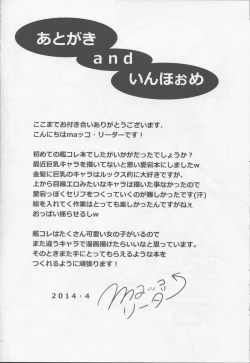 あとがき
and
いんほぉめ
ここまでお付き合いありがとうございます。
こんにちはmaッコ・リーダーです！
初めての艦コレ本でしたがいかがだったでしょうか？
最近巨乳キャラを描いてないと思い愛宕本にしましたw
金髪に巨乳のキャラはルックス的に大好きですが、
上から目線エロみたいなキャラは描いた事なかったので
愛宕っぽくもセリフをつくっていくのに難しかったです(汗)
絵を入れてく作業はとっても楽しかったんですがねぇ
おっぱい揺らせるしw
艦コレはたくさん可愛い女の子がいるので
また違うキャラで漫画描けたらいいなと思っています。
そのときまた手にとってもらえるような本を
つくれるように頑張ります！
2014・4
maッコ
リーダー